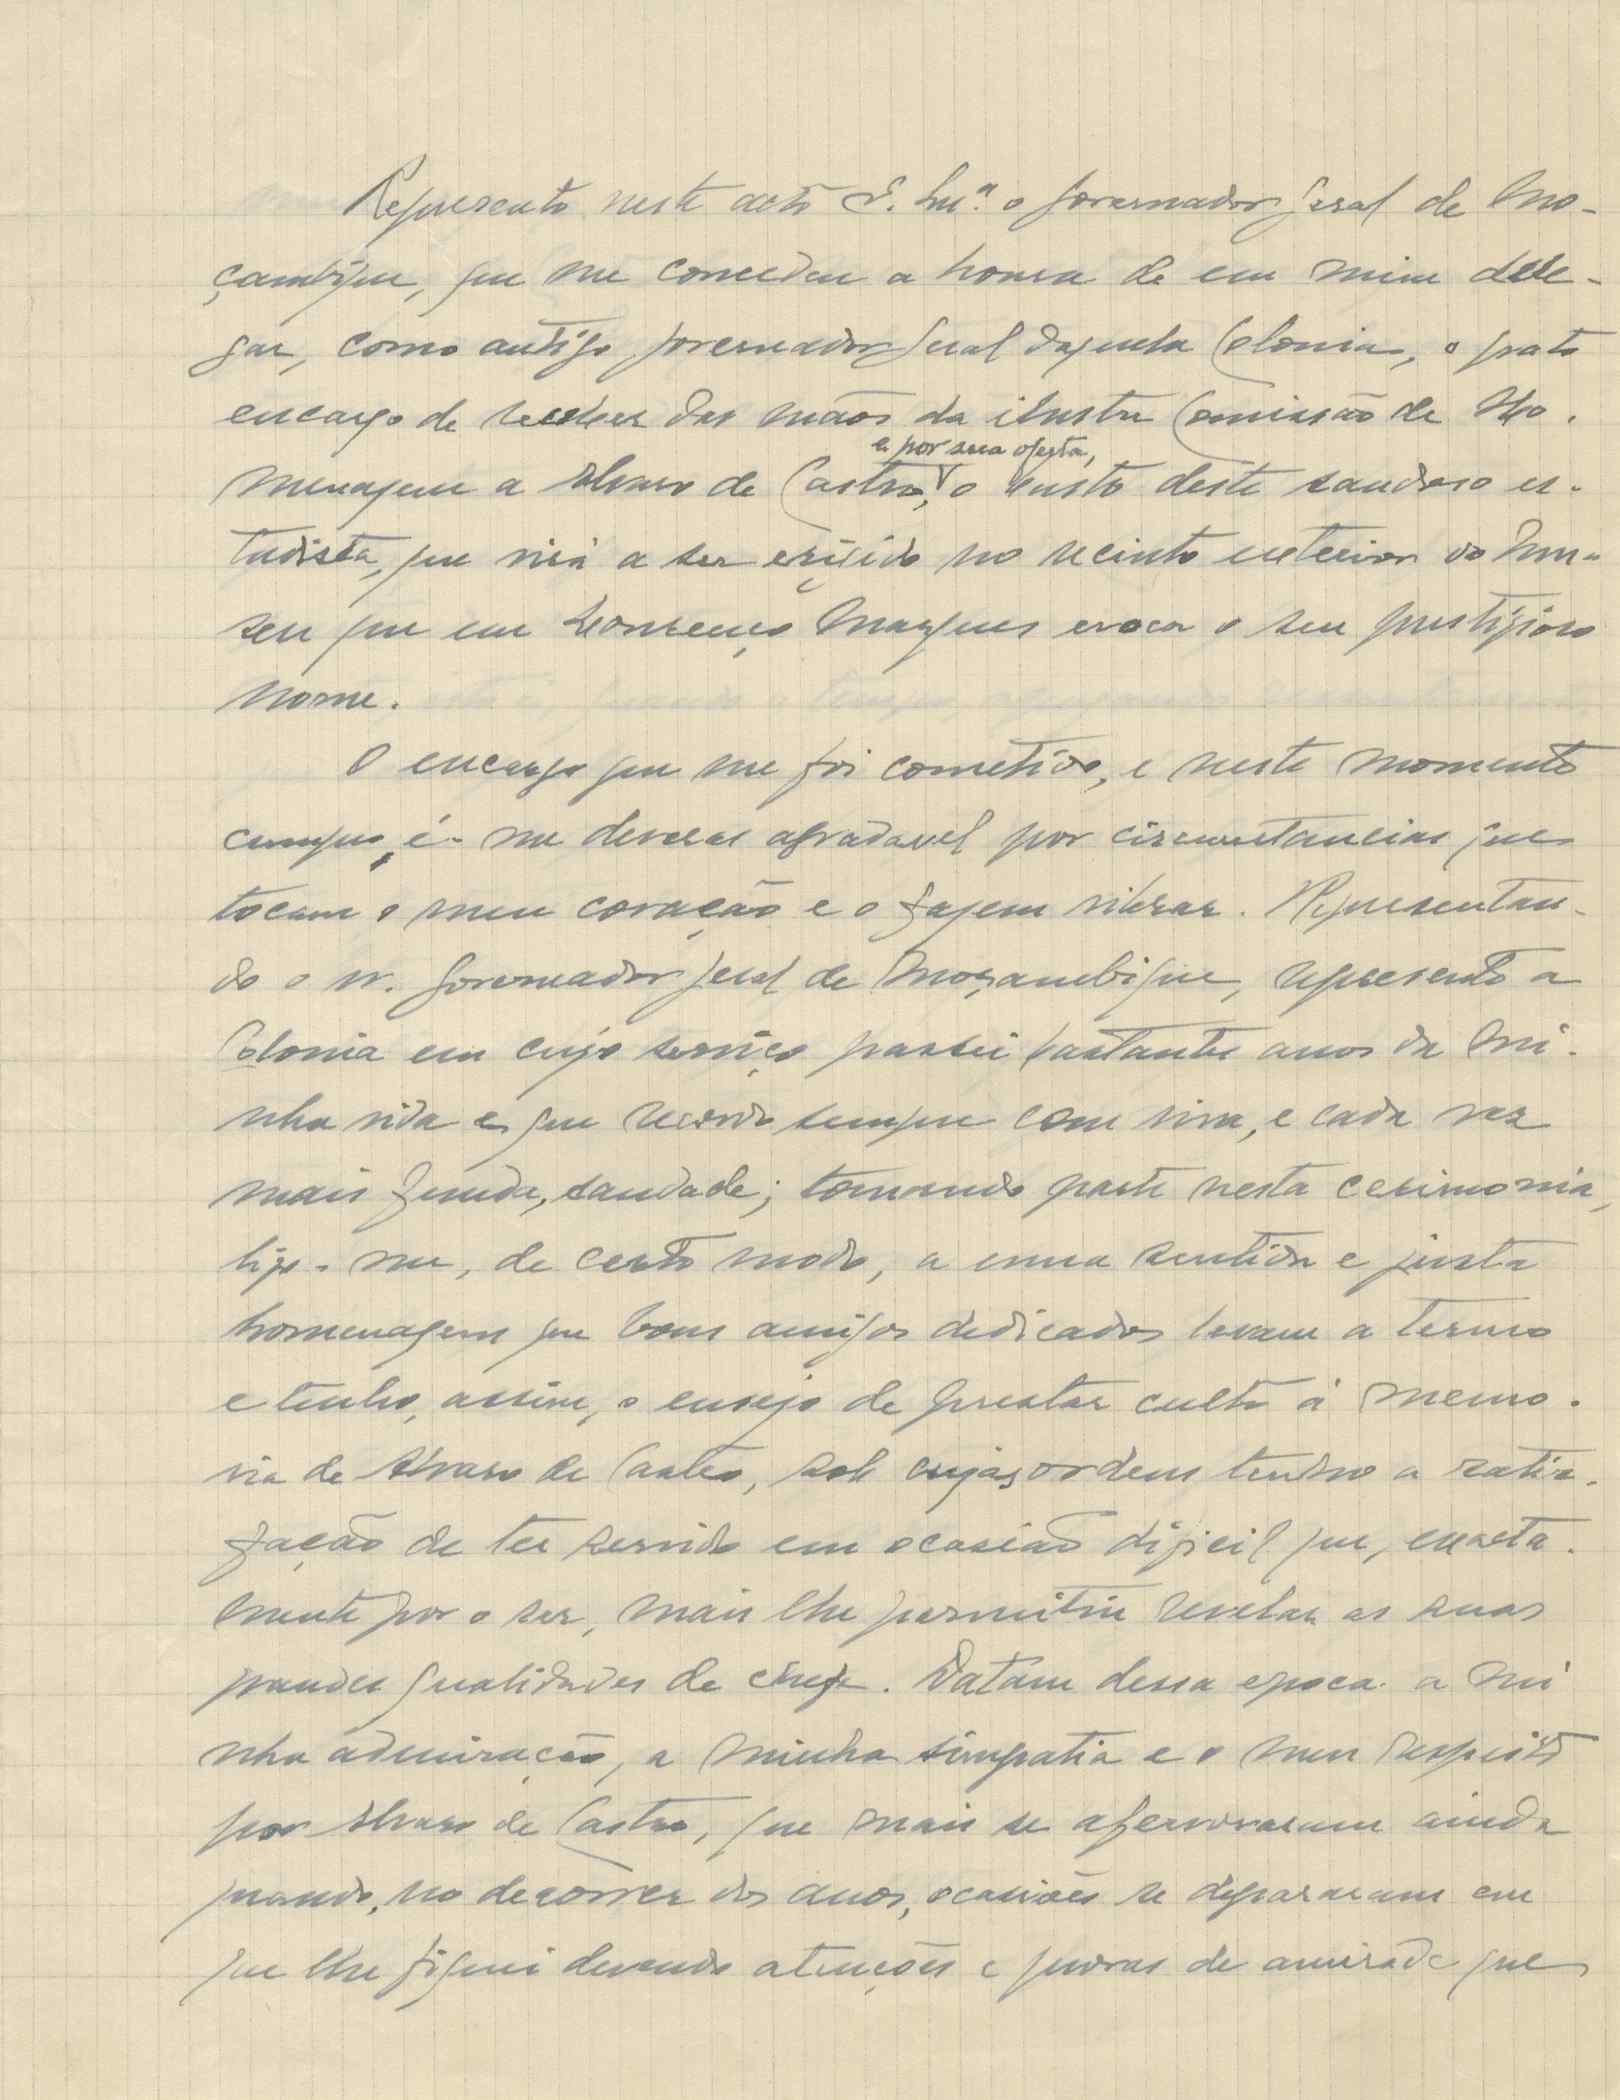 Represento neste acto S. Ex.ª o governador geral de Mo-
çambique, que me concedeu a honra de em mim dele-
gar, como antigo governador geral daquela Colonia, o grato
encargo de receber das mãos da ilustre Comissão de Ho-
menagem a Alvaro de Castro, e por sua oferta, o busto deste saudoso es-
tadista, que virá a ser erigido no recinto exterior do Mu-
seu que em Lourenço Marques evoca o seu prestigioso
nome.
O encargo que me foi cometido, e neste momento
cumpro, é-me deveras agradavel por circunstancias que
tocam o meu coração e o fazem vibrar. Representan-
do o sr. governador geral de Moçambique, represento a
Colonia em cujo serviço passei bastantes anos da mi-
nha vida e que recordo sempre com viva, e cada vez
mais funda, saudade; tomando parte nesta cerimonia,
ligo-me, de certo modo, a uma sentida e justa
homenagem que bons amigos dedicados levam a termo
e tenho, assim, o ensejo de prestar culto á memo-
ria de Alvaro de Castro, sob cujas ordens tenho a satis-
fação de ter servido em ocasião dificil que, exacta-
mente por o ser, mais lhe permitiu revelar as suas
grandes qualidades de chefe. Datam dessa epoca a mi
nha admiração, a minha simpatia e o meu respeito
por Alvaro de Castro, que mais se afervoraram ainda
quando, no decorrer dos anos, ocasiões se depararam em
que lhe fiquei devendo atenções e provas de amizade que